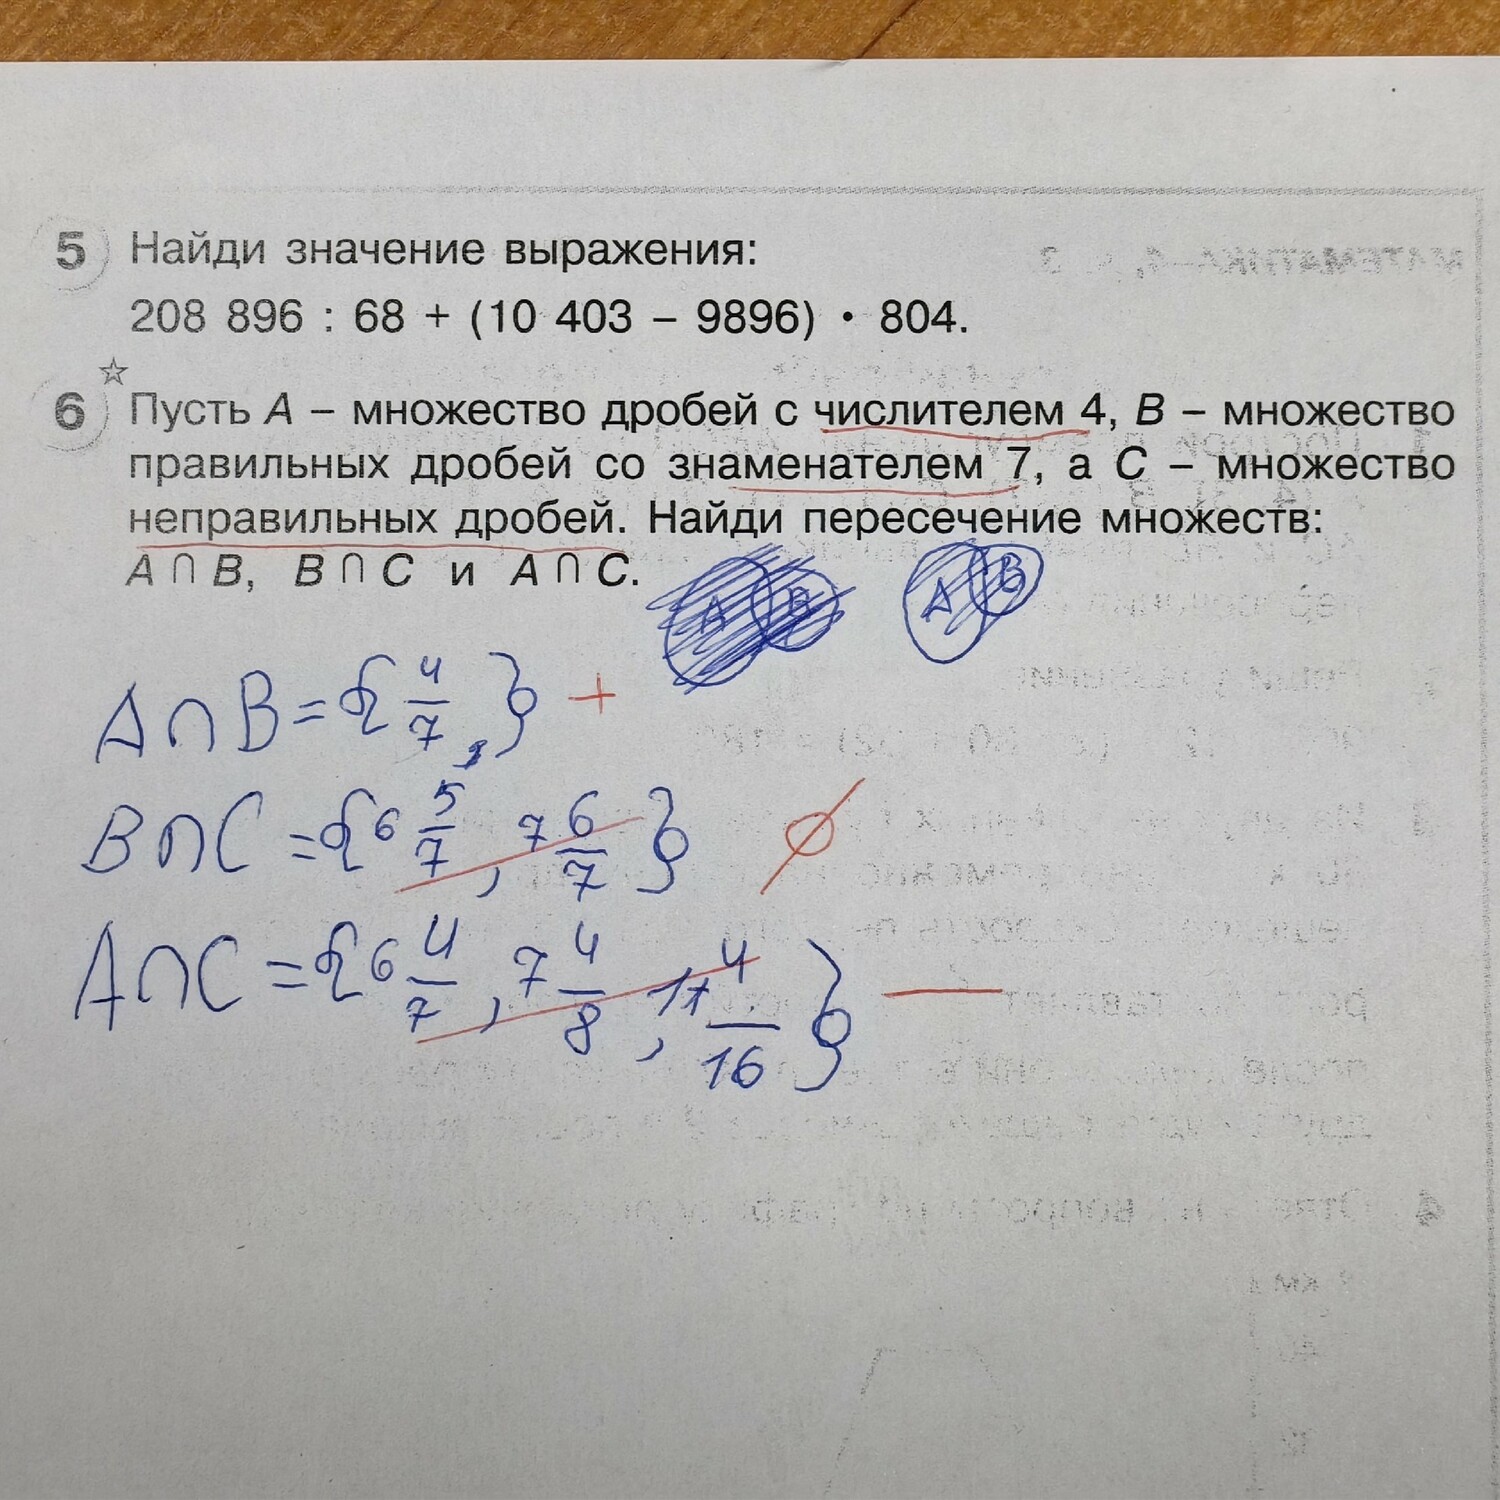 5 Найди значение выражения:
208 896 : 68 + (10 403 – 9896) • 804.
6 Пусть A – множество дробей с числителем 4, B – множество
правильных дробей со знаменателем 7, а C – множество
неправильных дробей. Найди пересечение множеств:
A ∩ B, B ∩ C и A ∩ C.
A B A B
A∩B={4/7,} +
B∩C={6 5/7, 7 6/7} ∅
A∩C={6 4/7, 7 4/8, 11 4/16} —